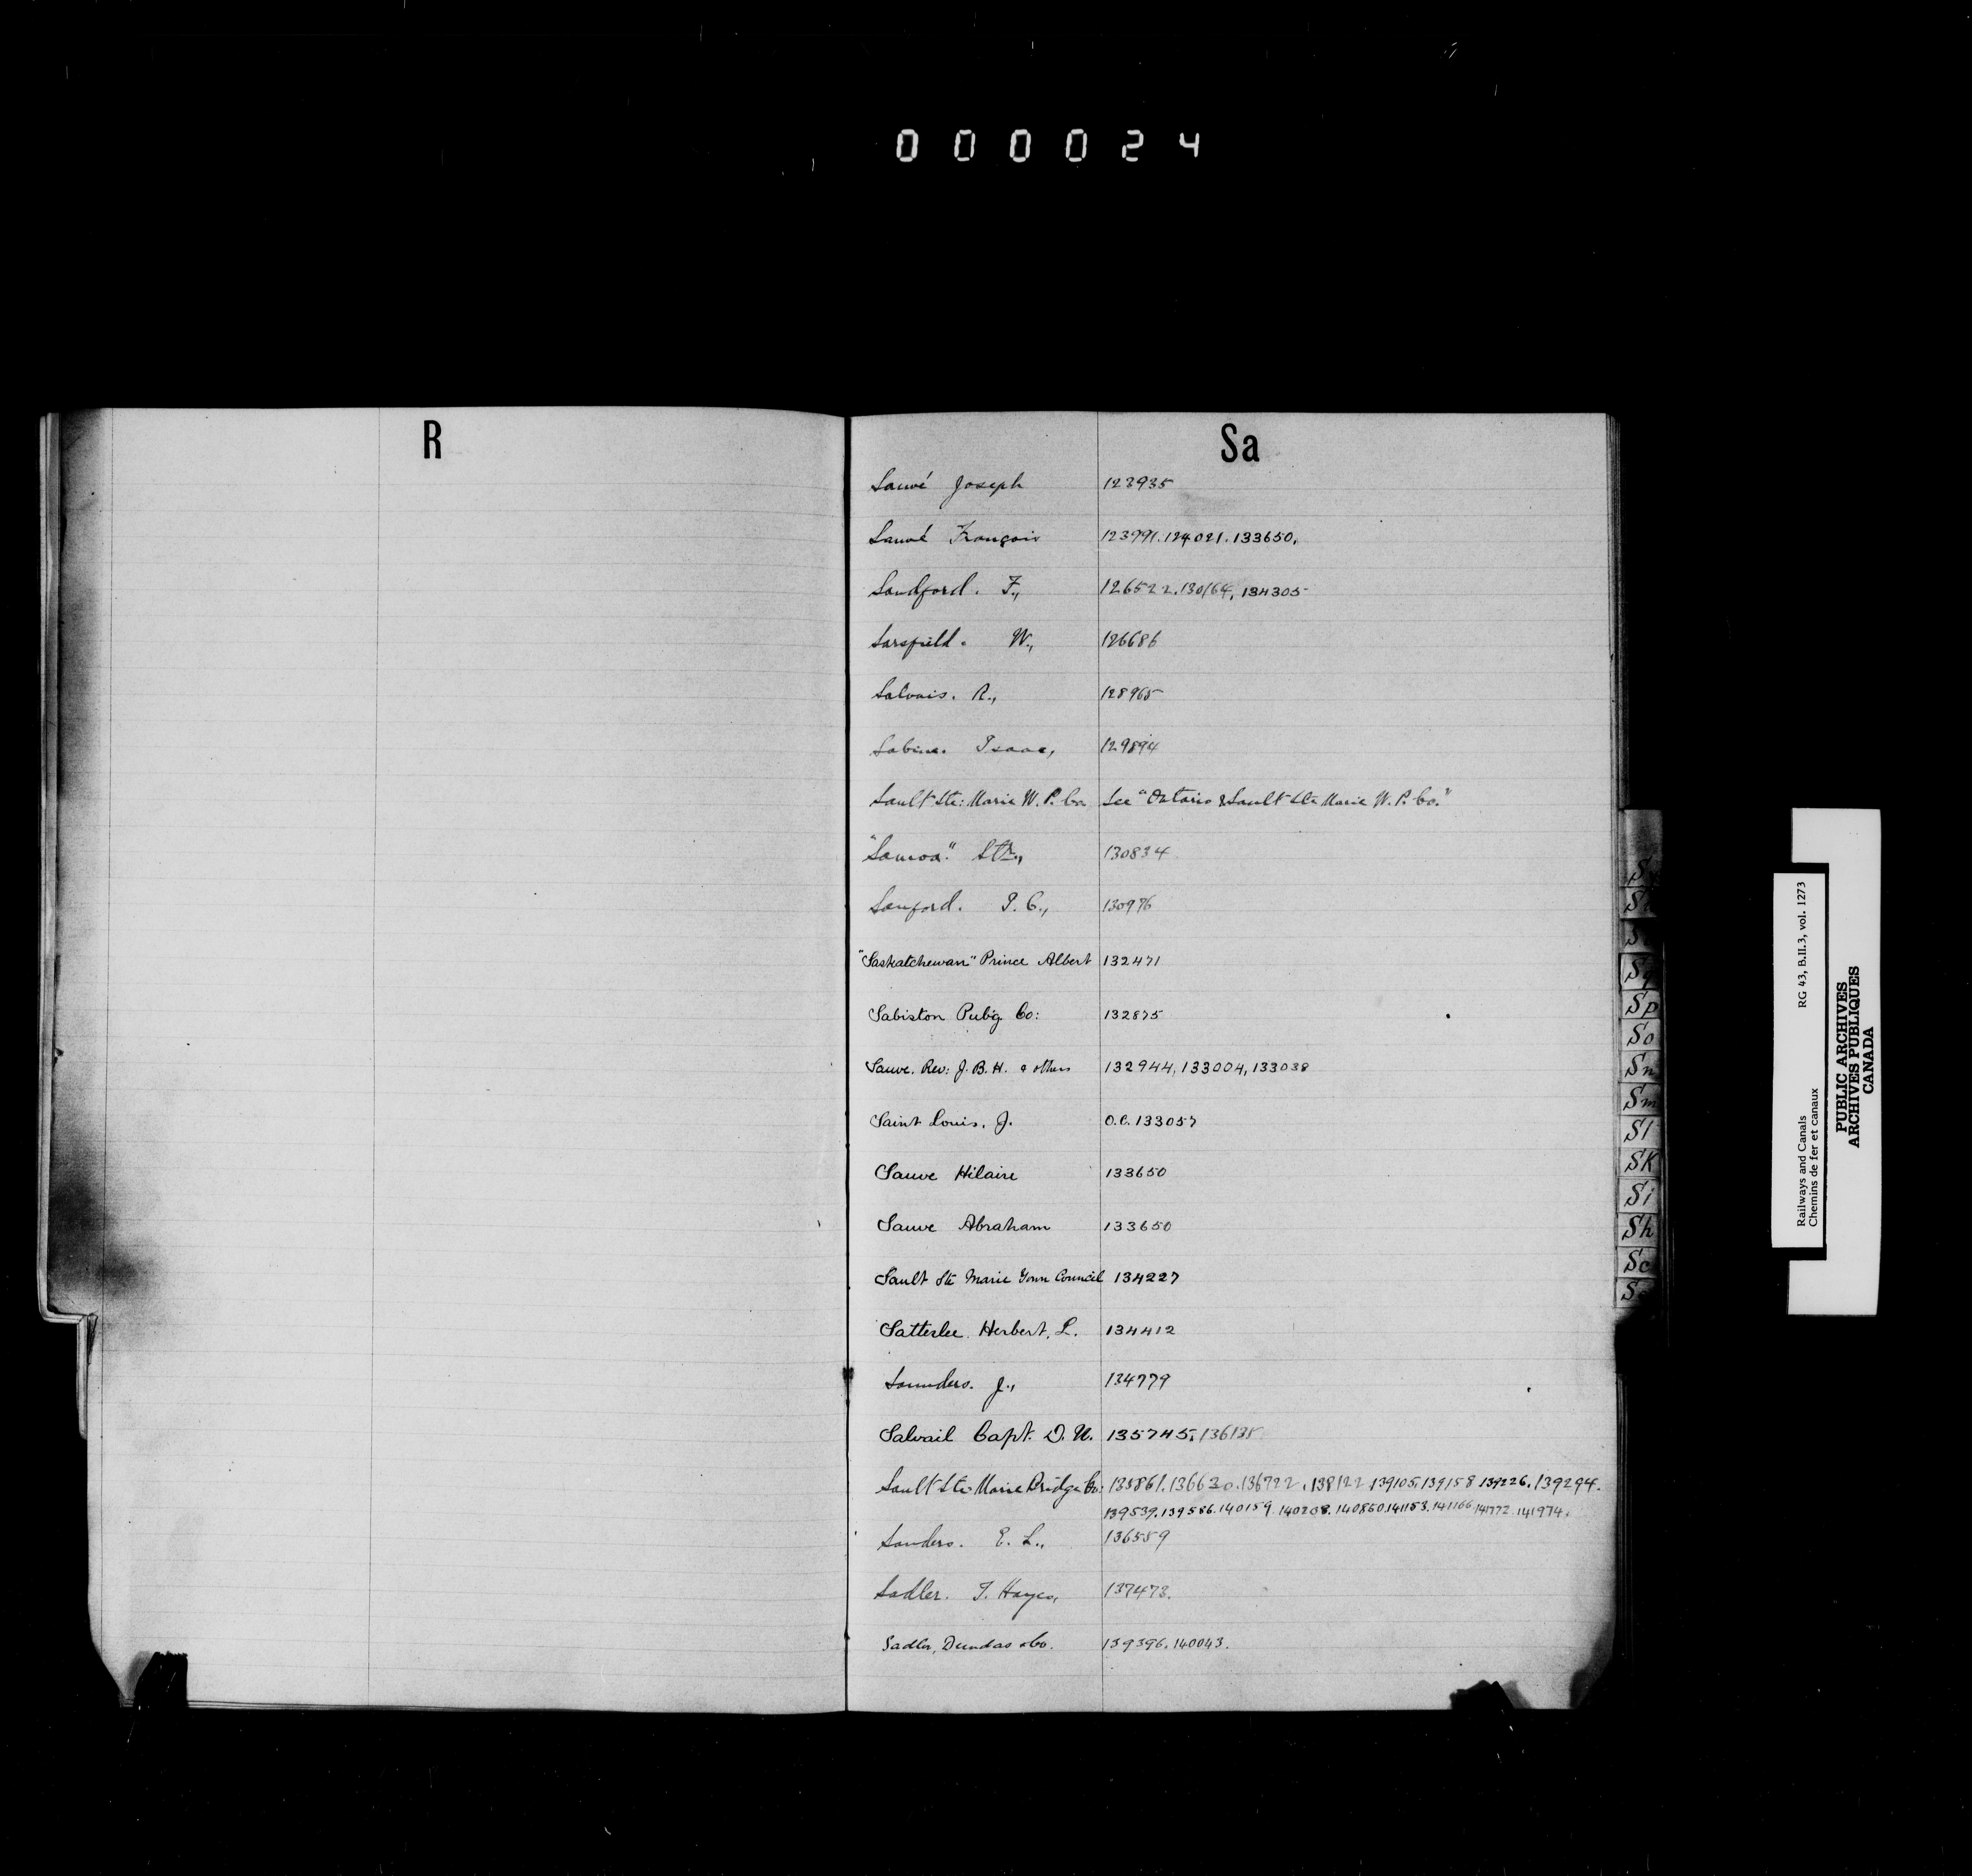 000024
R
Sa
Sauvé Joseph 123935
Sauvé François 123991. 124021. 133650.
Sandford. F., 126522. 130164, 134305
Sarsfield. W., 126686
Salvais. R., 128965
Sabine. Isaac, 129894
Sault Ste: Marie W. P. Co. See "Ontario & Sault Ste Marie W. P. Co."
"Samoa." Str., 130834
Sanford. I. C., 130976
"Saskatchewan" Prince Albert 132471
Sabiston Pub'g. Co: 132875
Sauve. Rev: J. B. H. & others 132944, 133004, 133038
Saint Louis, J. O.C. 133057
Sauve Hilaire 133650
Sauve Abraham 133650
Sault Ste Marie Town Council 134227
Satterlee. Herbert. L. 134412
Saunders. J., 134779
Salvail Capt. D. U. 135745, 136138
Sault Ste Marie Bridge Co: 135861. 136630. 136722. 138122 139105. 139158 139226. 139294.
139539. 139586. 140159. 140208. 140850. 141153. 141166. 141772. 141974.
Sanders. E. L., 136589
Sadler. T. Hayes, 137473.
Sadler, Dundas & Co. 139396. 140043.
Sq
Sp
So
Sn
Sm
Sl
SK
Si
Sh
Sc
Railways and Canals RG 43, B.II.3, vol. 1273
Chemins de fer et canaux
PUBLIC ARCHIVES
ARCHIVES PUBLIQUES
CANADA